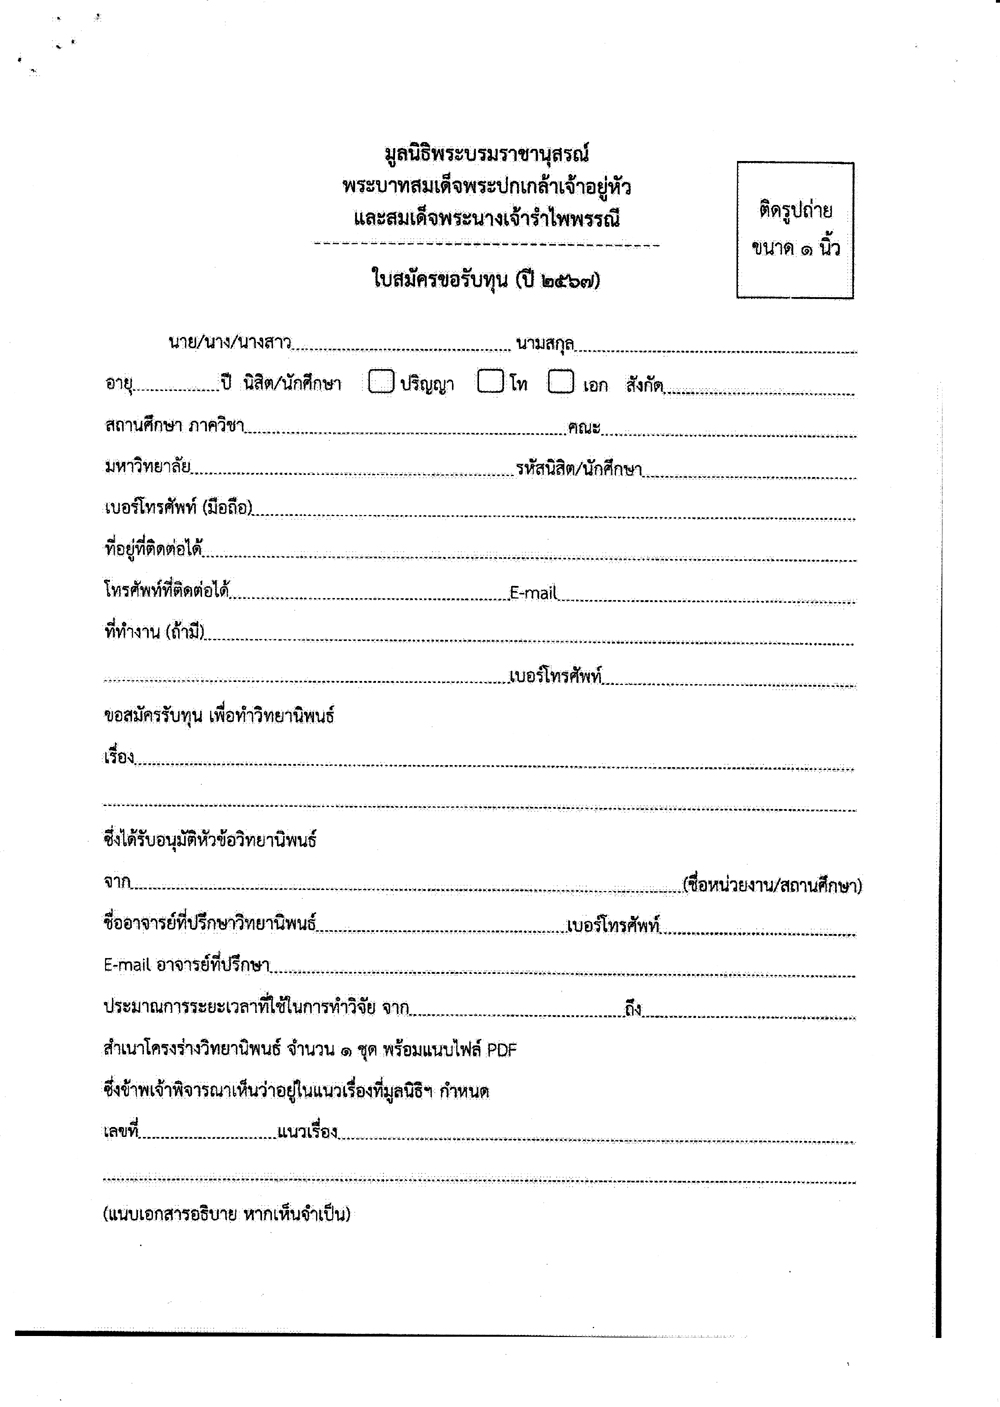 มูลนิธิพระบรมราชานุสรณ์
พระบาทสมเด็จพระปกเกล้าเจ้าอยู่หัว
และสมเด็จพระนางเจ้ารำไพพรรณี
ติดรูปถ่าย
ขนาด ๑ นิ้ว
ใบสมัครขอรับทุน (ปี ๒๕๖๗)
นาย/นาง/นางสาว นามสกุล
อายุ ปี นิสิต/นักศึกษา ปริญญา โท เอก สังกัด
สถานศึกษา ภาควิชา คณะ
มหาวิทยาลัย รหัสนิสิต/นักศึกษา
เบอร์โทรศัพท์ (มือถือ)
ที่อยู่ที่ติดต่อได้
โทรศัพท์ที่ติดต่อได้ E-mail
ที่ทำงาน (ถ้ามี)
เบอร์โทรศัพท์
ขอสมัครรับทุน เพื่อทำวิทยานิพนธ์
เรื่อง
ซึ่งได้รับอนุมัติหัวข้อวิทยานิพนธ์
จาก (ชื่อหน่วยงาน/สถานศึกษา)
ชื่ออาจารย์ที่ปรึกษาวิทยานิพนธ์ เบอร์โทรศัพท์
E-mail อาจารย์ที่ปรึกษา
ประมาณการระยะเวลาที่ใช้ในการทำวิจัย จาก ถึง
สำเนาโครงร่างวิทยานิพนธ์ จำนวน ๑ ชุด พร้อมแนบไฟล์ PDF
ซึ่งข้าพเจ้าพิจารณาเห็นว่าอยู่ในแนวเรื่องที่มูลนิธิฯ กำหนด
เลขที่ แนวเรื่อง
(แนบเอกสารอธิบาย หากเห็นจำเป็น)